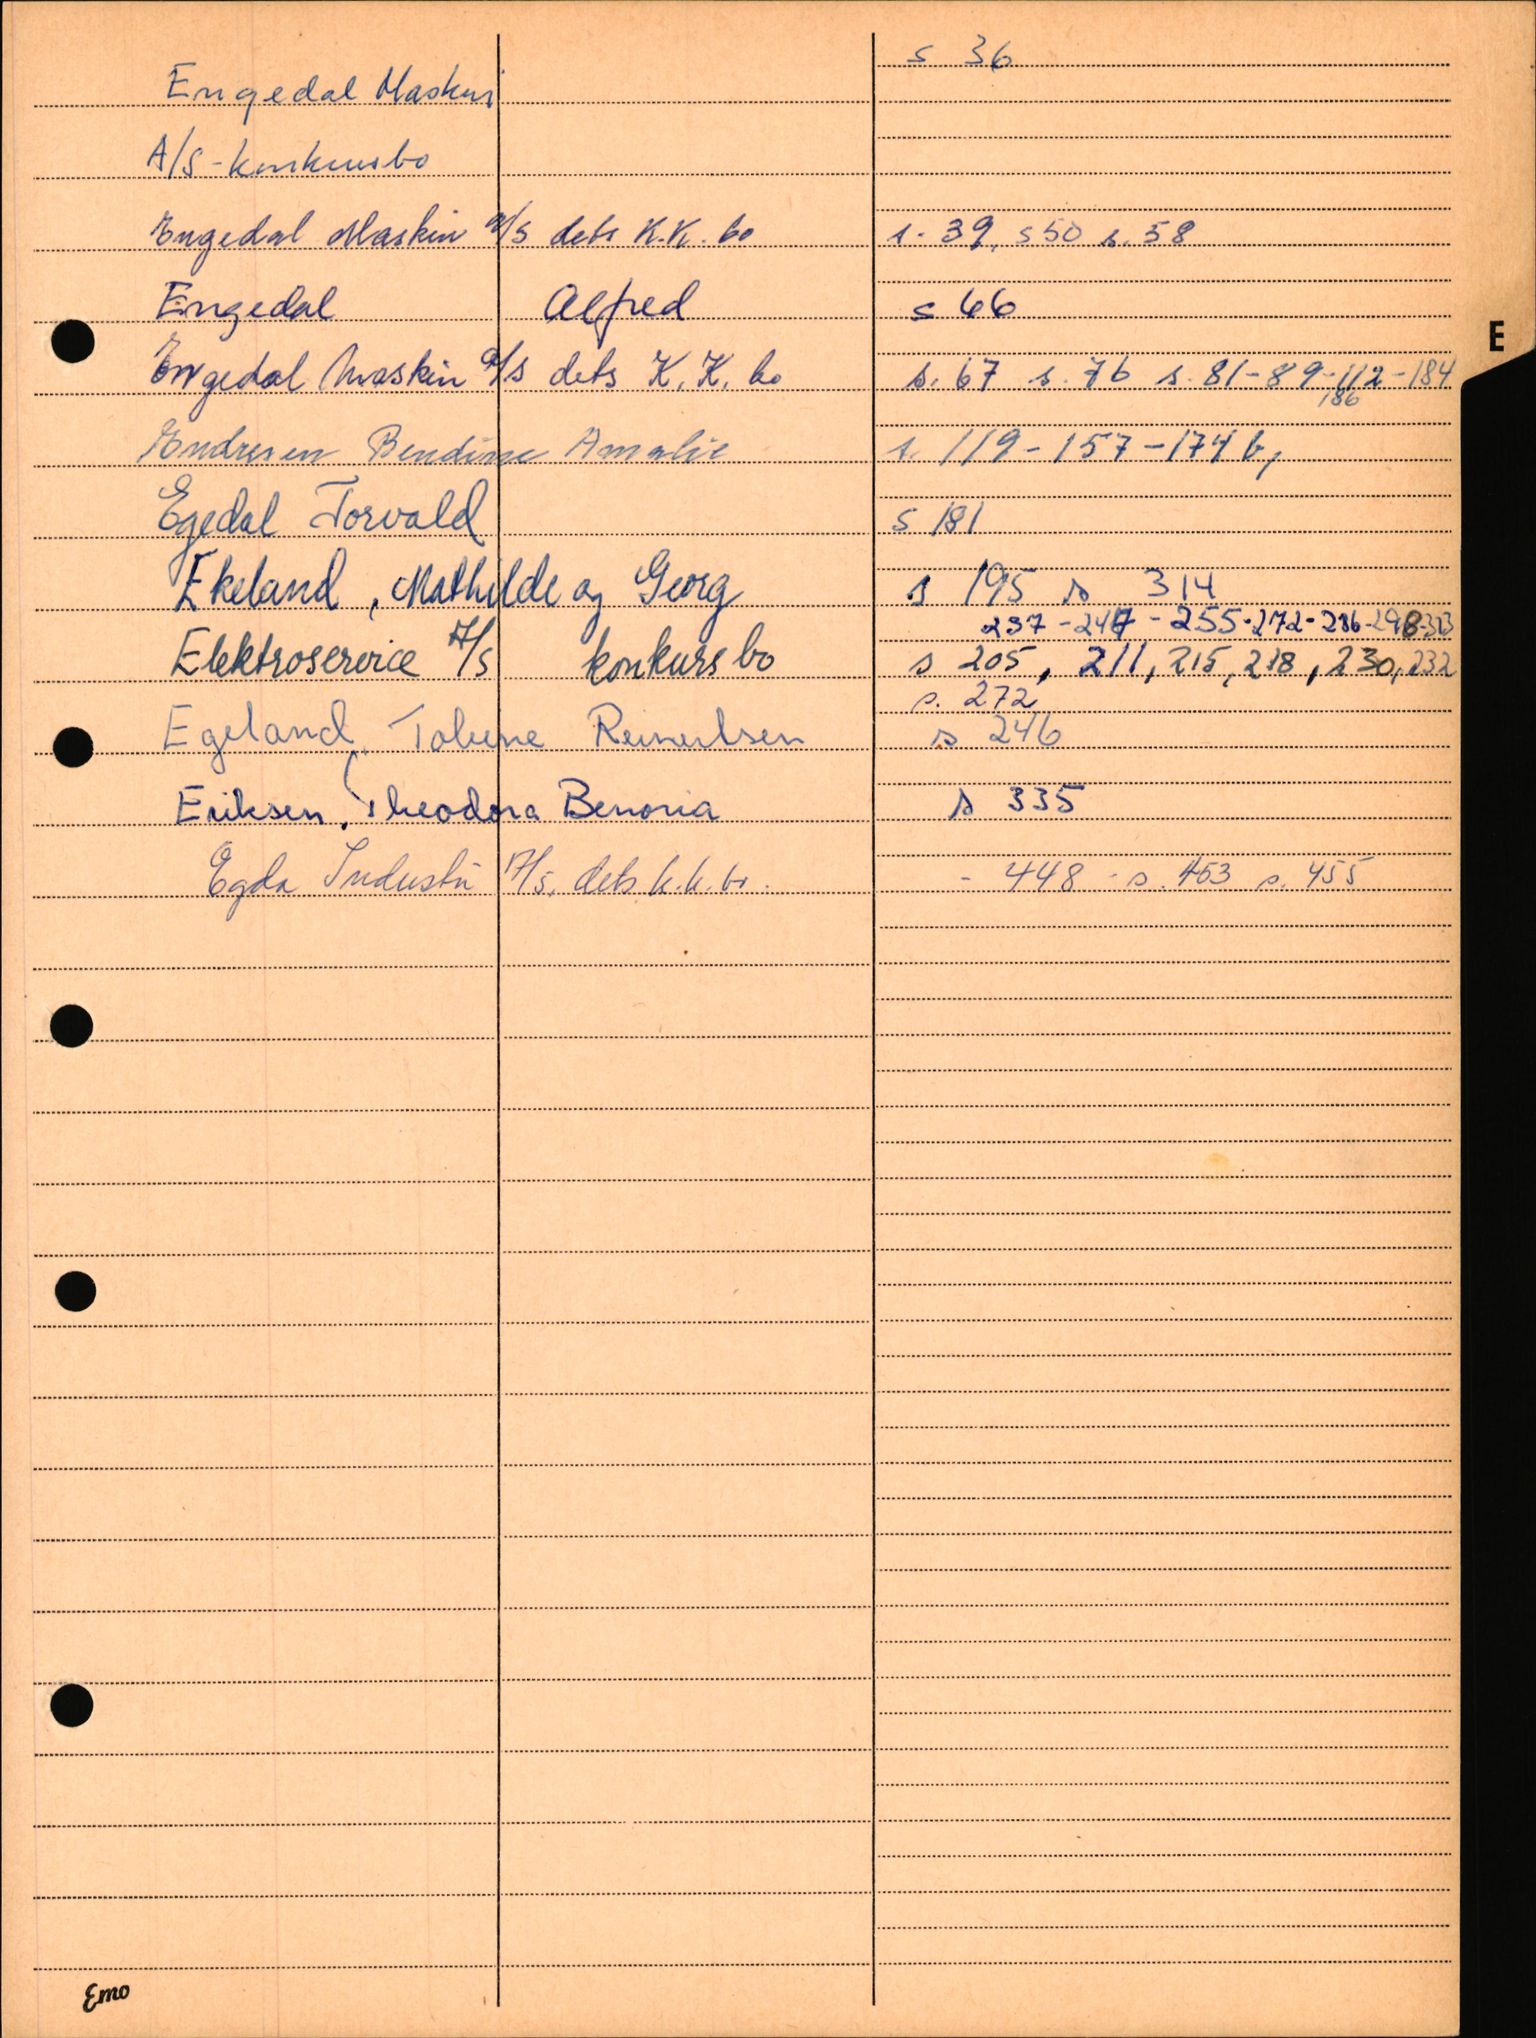 s 36
Engedal Maskin
A/S - konkursbo
Engedal Maskin a/s dets K.K. bo s. 39, s 50 s. 58
Engedal Alfred s 66
E
Engedal Maskin a/s dets K. K. bo s. 67 s. 76 s. 81-89-112-184
186
Endresen Bendine Amalie s. 119-157-174 b,
Egedal Torvald s 181
Ekeland, Mathilde og Georg s 195 s 314
237-247-255-272-286-298-313
Elektroservice A/s konkurs bo s 205, 211, 215, 218, 230, 232
s. 272
Egeland, Reinertsen s 246
Eriksen, Theodora Benoria s 335
Egda Industri A/s, dets k.k. bo. - 448 - s. 453 s. 455
Emo